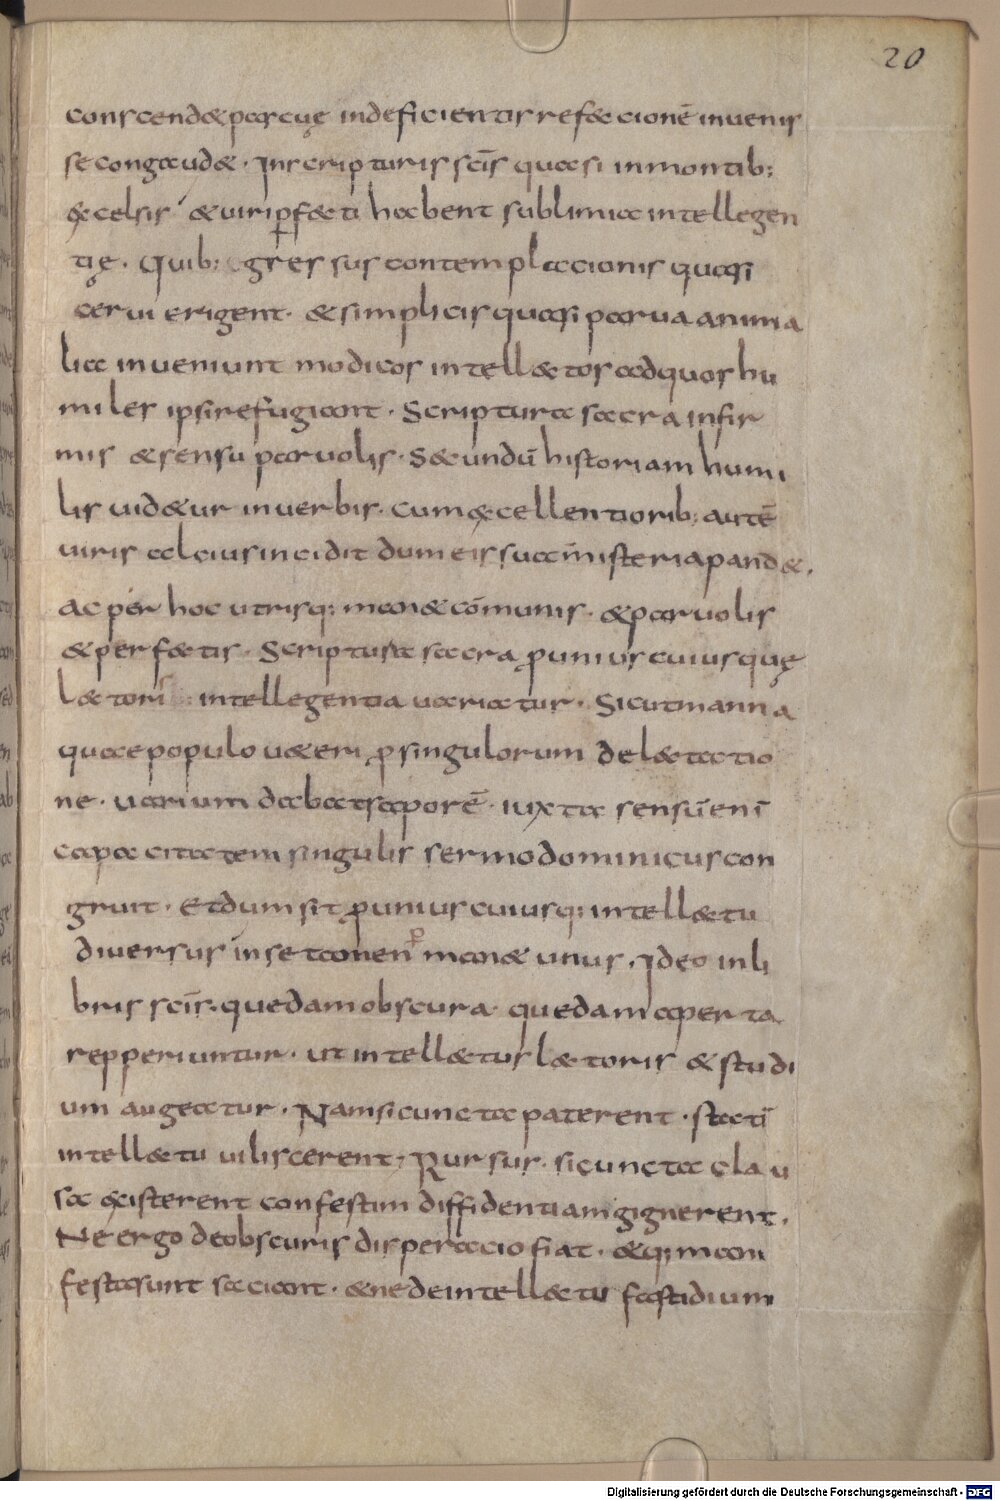 20
conscendæ pascuę indeficientis refæccionē inuenis
se congaudæ · In scripturis scīs quasi in montib;
excelsis · & uiri p̲fæcti habent sublimia intellegen
tię · Quib; gressus contemplacionis quasi
cerui erigent · & simplicis quasi parua anima
lia inueniunt modicos intellæctos ad quos hu
miles ipsi refugiant · Scriptura sacra infir
mis & sensu paruolis · Secundū historiam humi
lis uidæur in uerbis · cum excellentiorib; autē
uiris alcius incidit dum eis sua misteria pandæ ·
ac per hoc utrisq; manæ cōmunis · & paruolis
& perfæctis · Scriptura sacra p̲ unius cuiusquę
læctoris intellegentia uariatur · Sicut manna
quae populo uæeri p̲ singulorum delæctatio
ne · uarium dabat saporē · iuxta sensū enī
capacitatem singulis sermo dominicus con
gruit · Et dum sit p̲ unius cuiusq; intellæctu
diuersus in se tamen p̲manæ unus · Ideo in li
bris scīs · quedam obscura · quedam aperta
repperiuntur · ut intellæctus læctoris & studi
um augeatur · Nam si cuncta paterent · statī
intellæctu uiliscerent · Rursur · si cuncta clau
sa existerent confestim diffidentiam gignerent ·
Ne ergo de obscuris disperacio fiat · & q; mani
festa sunt saciant · & ne de intellæctu fastidium
Digitalisierung gefördert durch die Deutsche Forschungsgemeinschaft - DFG